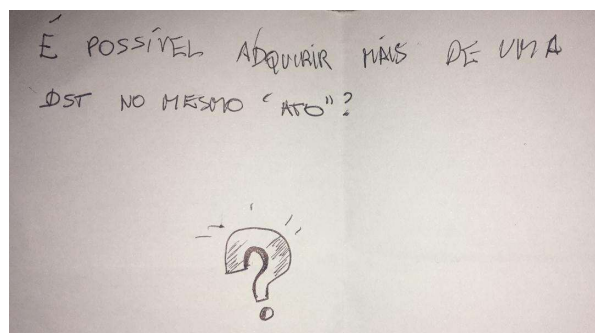 É POSSÍVEL ADQUIRIR MAIS DE UMA
DST NO MESMO "ATO"?